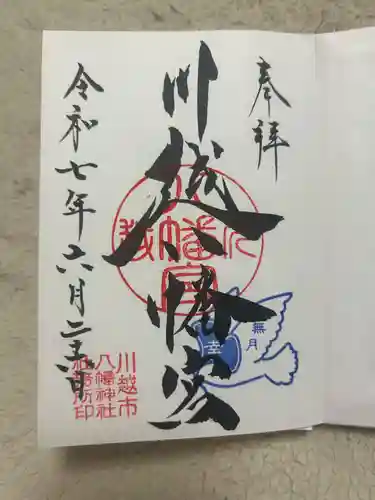 奉拝
川越八幡宮
令和七年六月二十五日
川越市
八幡神社
社務所印
無月
幸